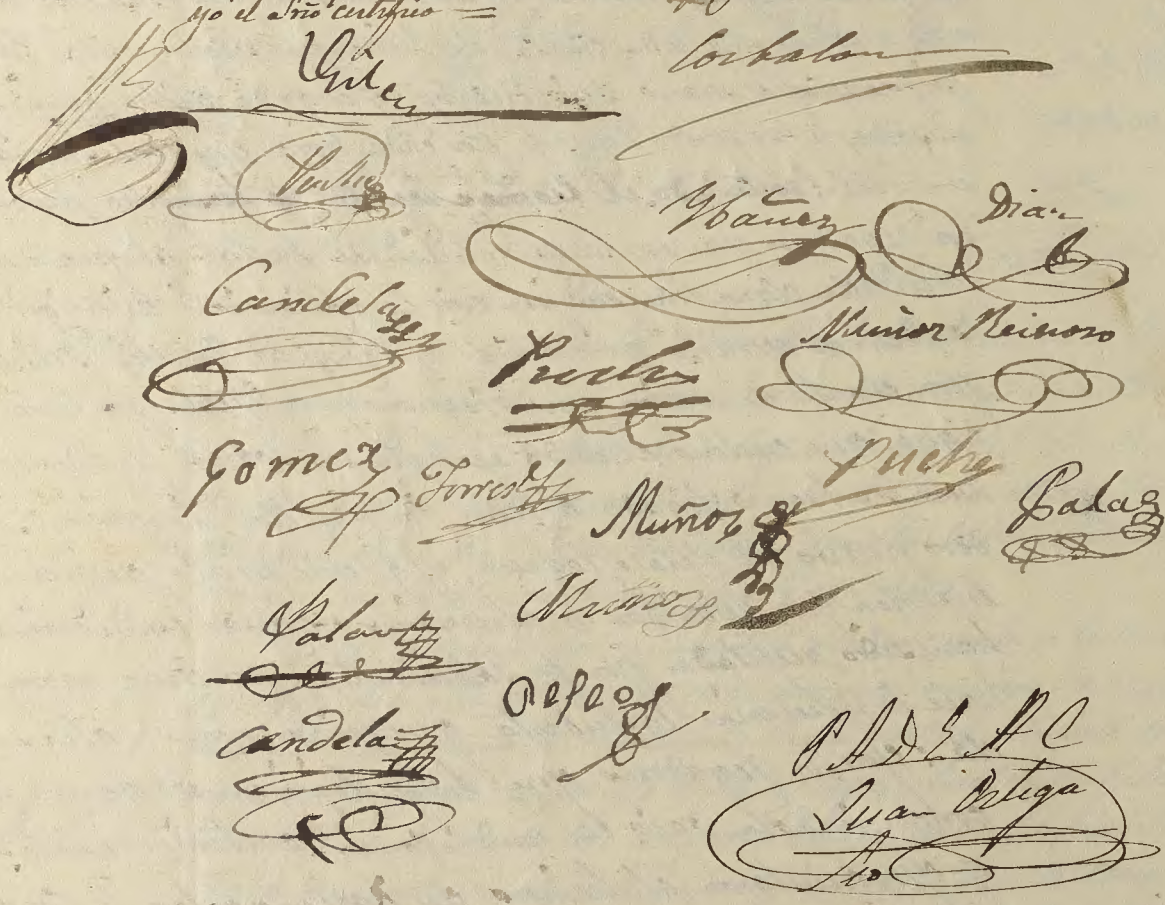 yo el Srio certifico =
Corbalan
Puche
Ybáñez
Diaz
Candela
Puche
Muñoz Reinoso
Gomez
Torres
Muñoz
Puche
Palao
Muñoz
Palao
Candela
P A D E A C
Juan Ortega
Srio